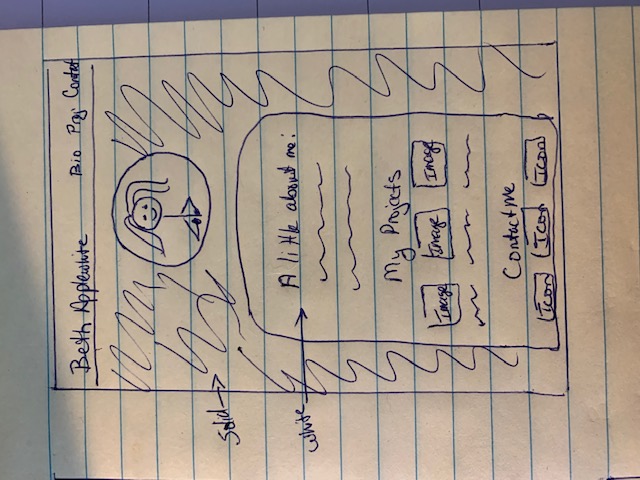 Beth Applewhite Bio Proj Contact
Solid
White
A little about me:
My Projects
Image Image Image
Contact Me
Icon Icon Icon